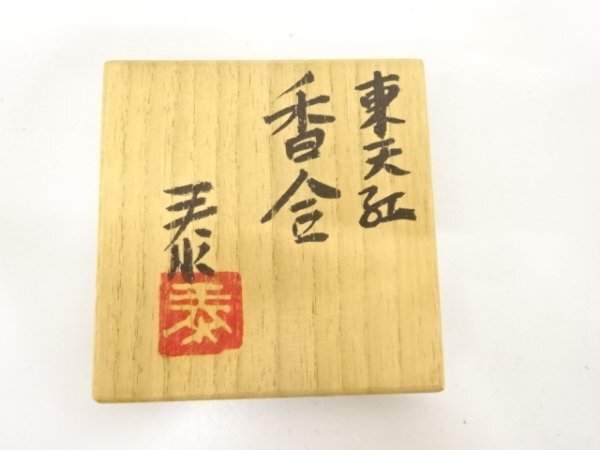 東天紅
香合
泰
泰